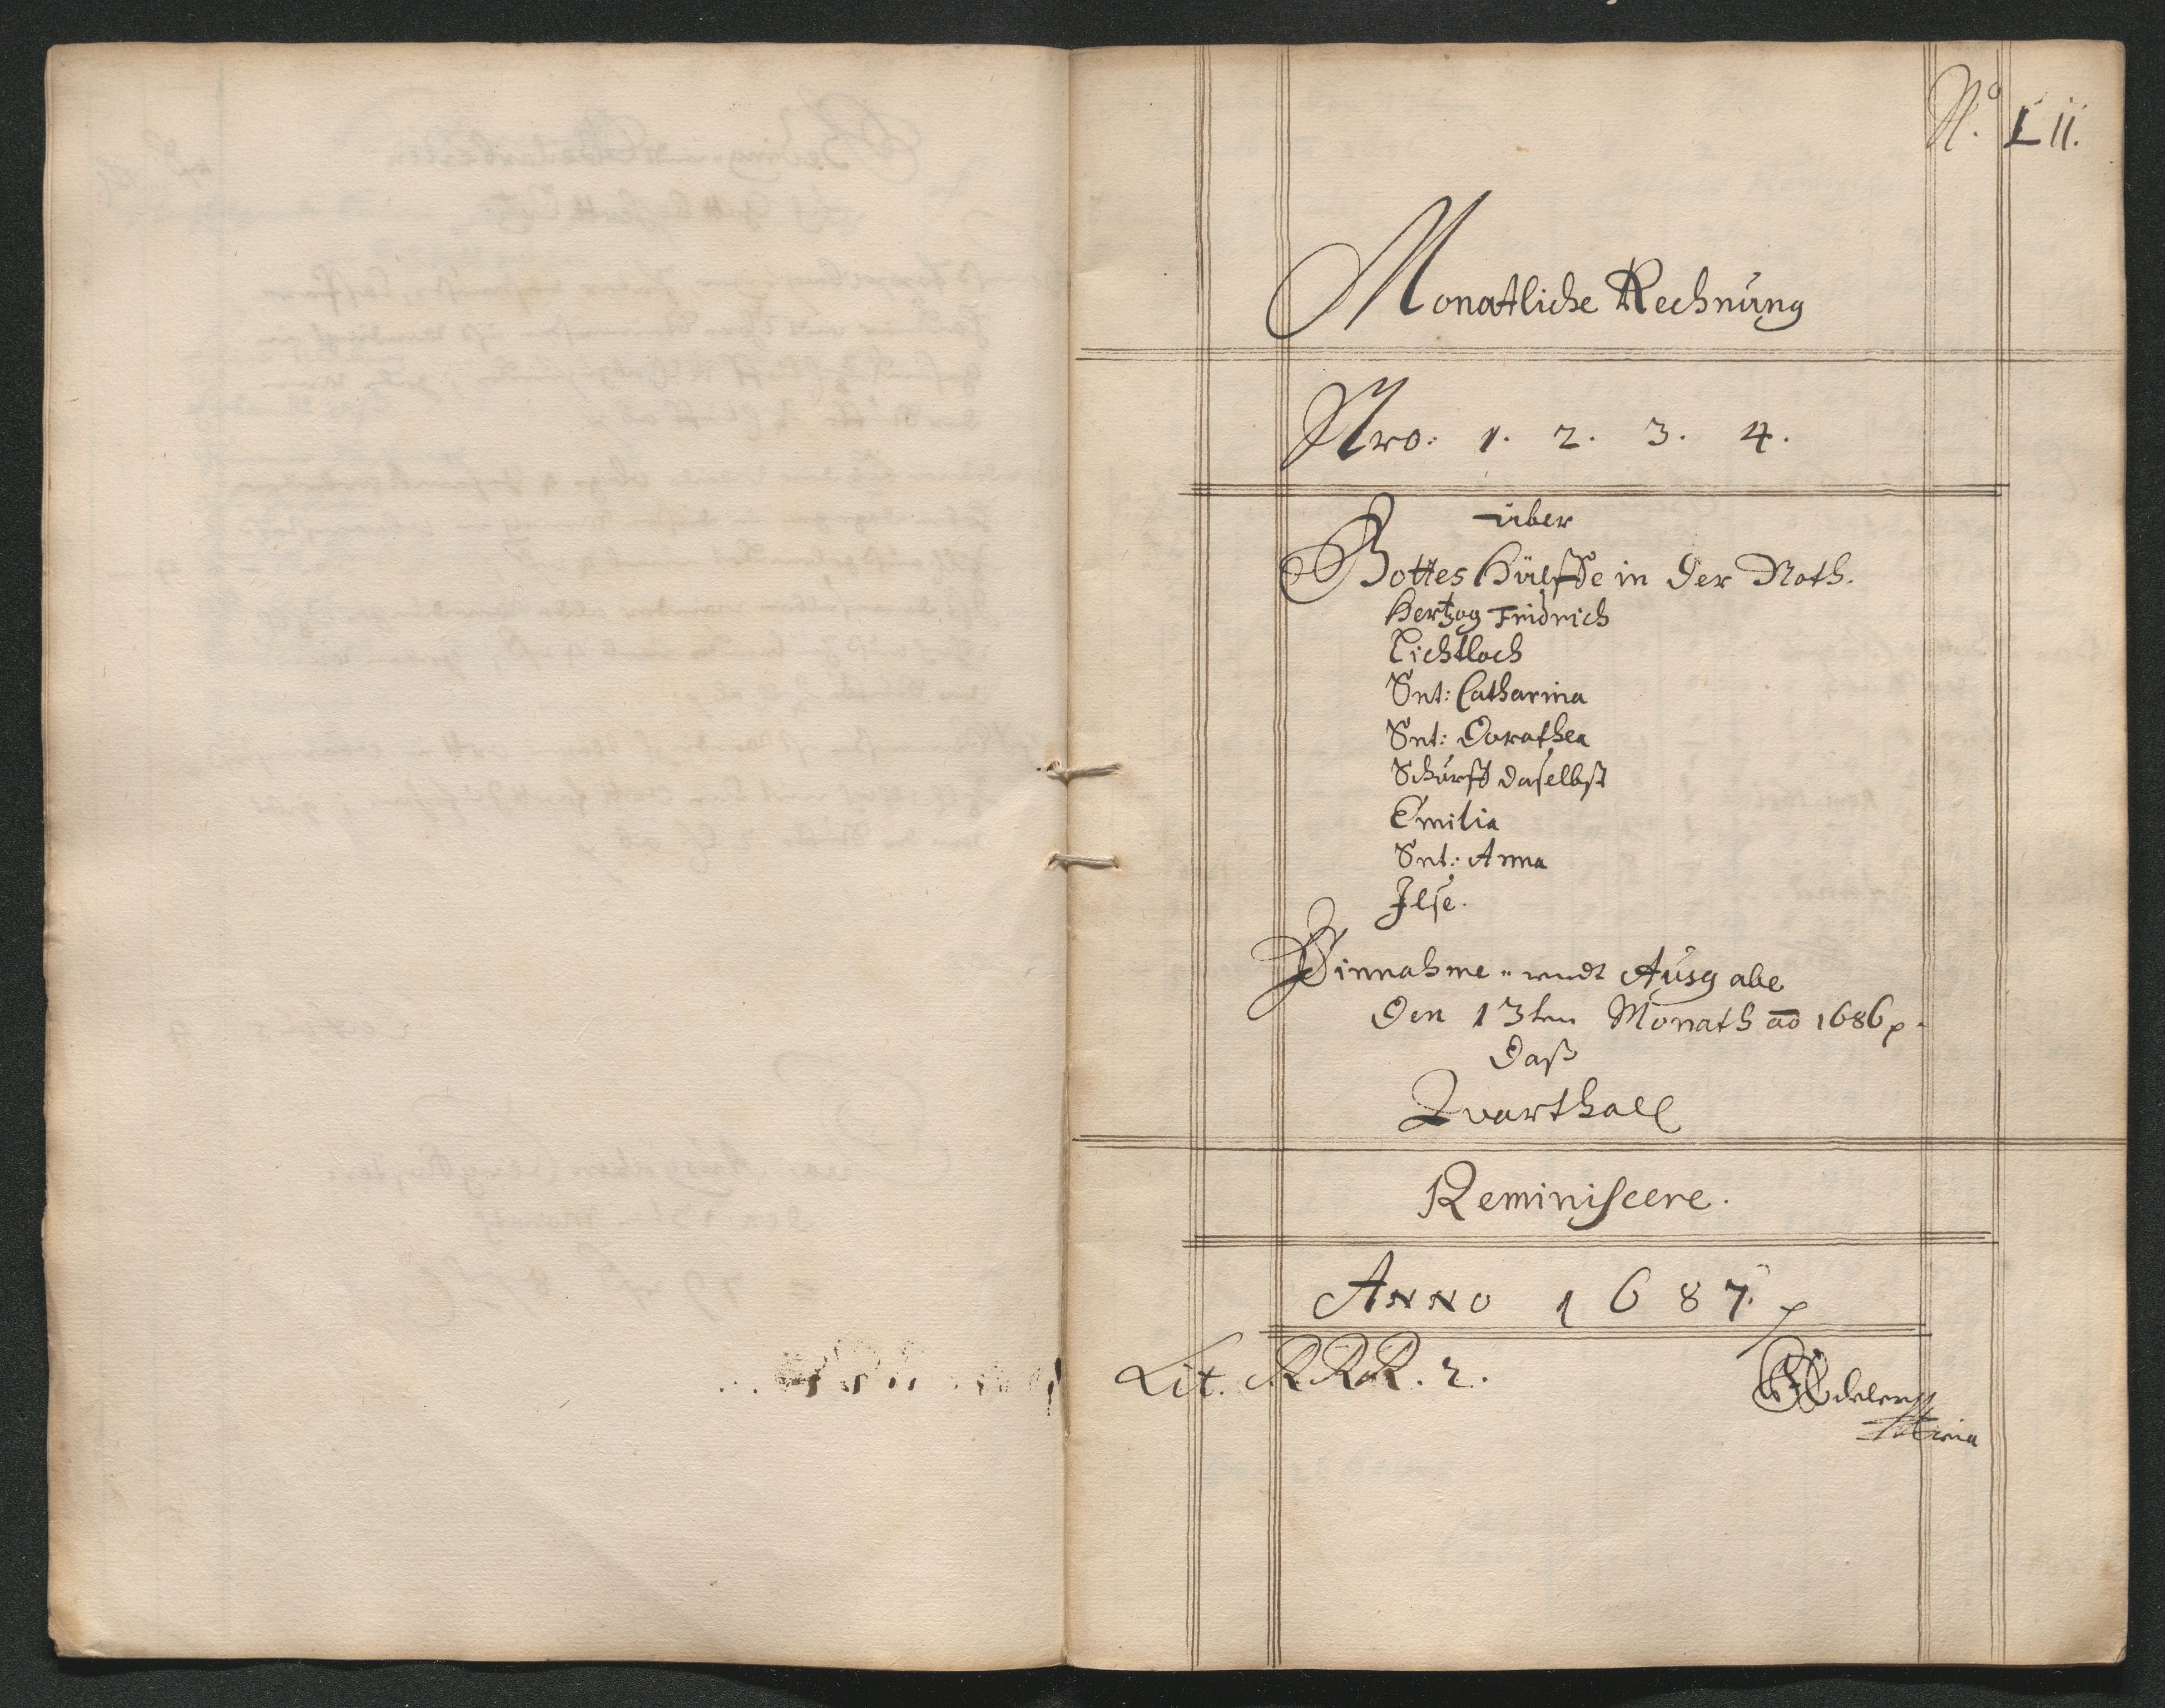 No. LII.
Monatliche Rechnüng
Nro: 1. 2. 3. 4.
über
Gottes Hülffe in der Noth.
Hertzog Fridrich
Lichtloch
Snt: Catharina
Snt: Dorothea
Schürff daselbst
Emilia
Snt: Anna
Ilse.
Einnahme- undt Aüsgabe
Den 13ten Monath ao 1686 p.
Daß
Qvarthall
Reminiscere.
ANNO 1687. p
Lit. RRR. 2.